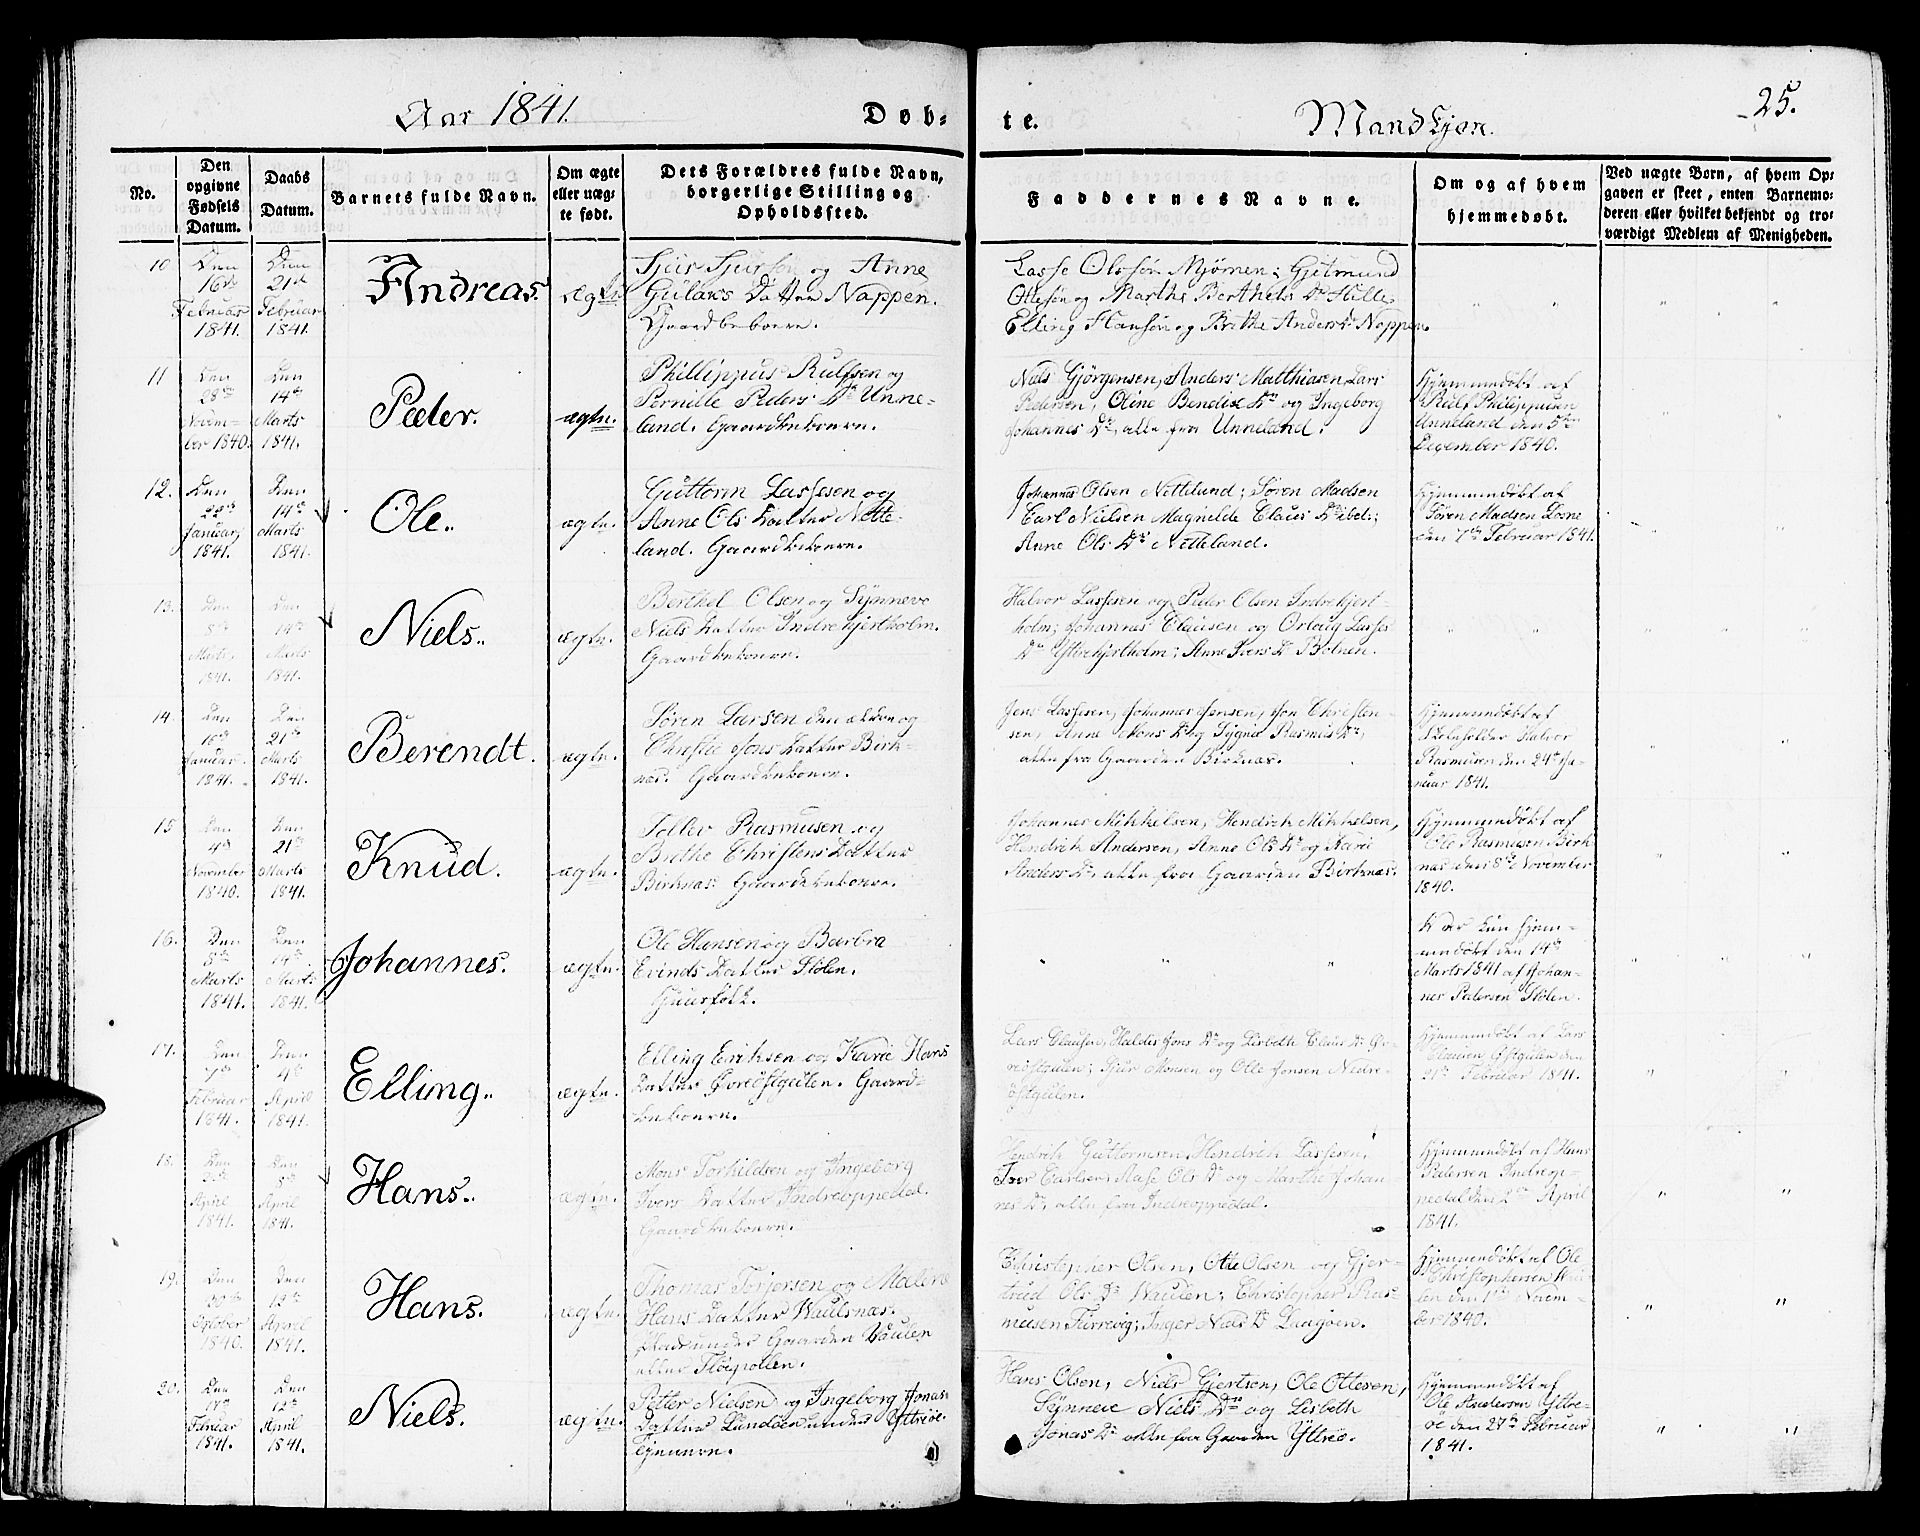 Aar 1841.
Døb-
te.
Mandkjøn.
25.
No.
Den
opgivne
Fødsels
Datum.
Daabs
Datum.
Barnets fulde Navn.
Om ægte
eller uæg-
te født.
Dets Forældres fulde Navn,
borgerlige Stilling og
Opholdssted.
Faddernes Navne.
Om og af hvem
hjemmedøbt.
Ved uægte Børn, af hvem Op-
gaven er skeet, enten Barnemo-
deren eller hvilket bekjendt og tro-
værdigt Medlem af Menigheden.
10
Den
16de
Februar
1841.
Den
21de
Februar
1841.
Andreas.
ægte
Sjur Sjursøn og Anne
Gulaks Datter Nappen.
Gaardbeboere.
Lasse Olssøn Mjømen; Gjetmund
Ottesøn og Marthe Berthels Dr Hille
Elling Hansøn og Brithe Anders Dr Nappen.
11
Den
28de
Novem-
ber 1840.
Den
14de
Marts
1841.
Peder.
ægte.
Phillippus Rulfsen og
Pernille Peders Dr Unne-
land. Gaardbeboere.
Niels Gjørgensen, Anders Matthiasen, Lars
Pedersen, Oline Bendix Dr og Ingeborg
Johannes Dr, alle fra Unneland.
Hjemmedøbt af
Rulf Philippusen
Unneland den 5te
December 1840.
12.
Den
Januar
1841.
Den
14de
Marts
1841.
Ole.
ægte.
Guttorm Lassesen og
Anne Ols Datter Nette-
land. Gaardbeboere.
Johannes Olsen Netteland; Søren Madsen
Carl Nielsen Magnilde Claus Dr
Anne Ols Dr Netteland.
Hjemmedøbt af
Søren Madsen
den 7de Februar 1841.
13.
Den
8de
Marts
1841.
Den
14de
Marts
1841.
Niels.
ægte.
Berthel Olsen og Synneve
Niels Datter Indrehjertholm.
Gaardbeboere.
Halvor Lassesen og Peder Olsen Indrehjert-
holm; Johannes Clausen og Orlaug Lasses
Dr Ytrehjertholm; Anne Ivers Dr Botnen.
14.
Den
Januar
1841.
Den
21de
Marts
1841.
Berendt.
ægte.
Søren Larsen den ældre og
Christie Jons Datter Birk-
næs. Gaardbeboere.
Jens Lassesen, Johannes Jensen, Jon Christen-
sen, Anne Mons Dr og Sygne Rasmus Dr,
alle fra Gaarden Birknæs.
Hjemmedøbt af
Skoleholder Halvor
Rasmusen den 24de Ja-
nuar 1841.
15
Den
4de
November
1840.
Den
21de
Marts
1841.
Knud.
ægte.
Tollev Rasmusen og
Brithe Christens Datter
Birknæs. Gaardbeboere.
Johannes Mikkelsen, Hendrik Mikkelsen,
Hendrik Andersen, Anne Ols Dr og Kari
Anders Dr, alle fra Gaarden Birknæs.
Hjemmedøbt af
Ole Rasmusen Birk
næs den 8de November
1840.
16.
Den
5te
Marts
1841.
Den
14de
Marts
1841.
Johannes.
ægte.
Ole Hansen og Barbra
Evinds Datter Stølen.
Huusfolk.
Er kun hjem-
medøbt den 14de
Marts 1841 af Johan-
nes Pedersen Stølen.
17.
Den
7de
Februar
1841.
Den
4de
April
1841.
Elling.
ægte.
Elling Eriksen og Kari Hans
Datter Øvreøstgulen. Gaard-
beboere.
Lars Clausen, Haldis Jons Dr og Lisbeth Claus Dr Øv-
reøstgulen; Sjur Monsen og Olle Jonsen Nedre-
østgulen.
Hjemmedøbt af Lars
Clausen Østgulen den
21de Februar 1841.
18.
Den
2den
April
1841.
Den
8de
April
1841.
Hans.
ægte.
Mons Torkildsen og Ingeborg
Ivers Datter Indreoppedal.
Gaardbeboere.
Hendrik Guttormsen, Hendrik Lassesen,
Iver Carlsen, Aase Ols Dr og Marthe Johan-
nes Dr, alle fra Indreoppedal.
Hjemmedøbt af Hans
Pedersen Indreop-
pedal den 2den April
1841.
19.
Den
30te
October
1840.
Den
12te
April
1841.
Hans.
ægte.
Thomas Torjersen og Malene
Hans Datter Waulsnæs.
Plads under Gaarden Vaulen
eller Fløipollen.
Christopher Olsen, Otte Olsen og Gjer-
trud Ols Dr Waulen; Christopher Ras-
musen Furrevig; Inger Niels Dr Langøen.
Hjemmedøbt af Ole
Christophersen Wau-
len den 1te Novem-
ber 1840.
20.
Den
17de
Februar
1841.
Den
12te
April
1841.
Niels.
ægte.
Petter Nielsen og Ingeborg Jonas
Datter Landøen under Ytrøe.
Hans Olsen, Niels Gjertsen, Ole Ottesen,
Synneve Niels Dr og Lisbeth
Jonas Dr alle fra Gaarden Yttrøe.
Hjemmedøbt af
Ole Andersen Yttrø-
e den 27de Februar
1841.